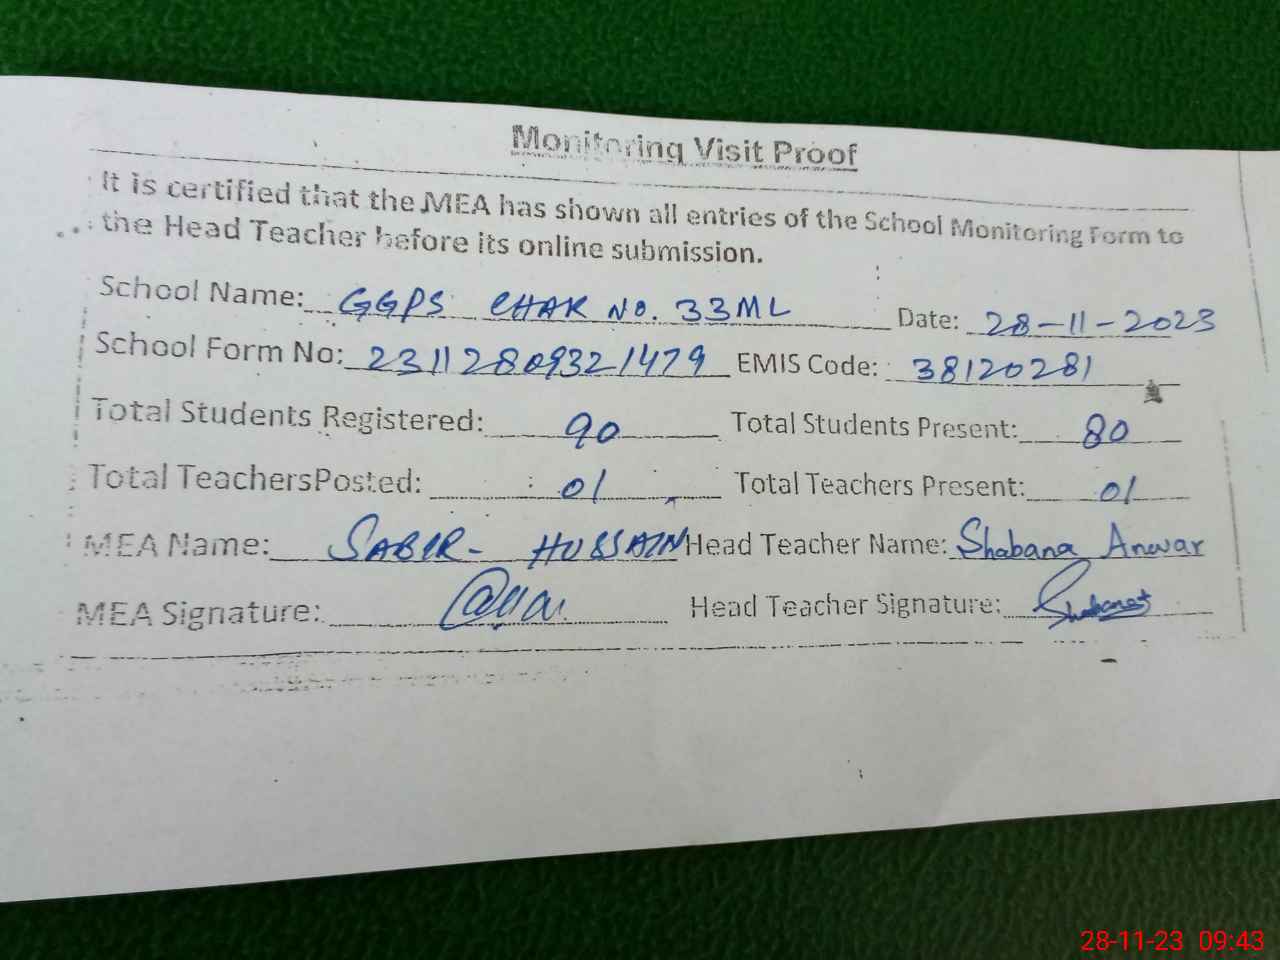 Monitoring Visit Proof
It is certified that the MEA has shown all entries of the School Monitoring Form to
the Head Teacher before its online submission.
School Name: GGPS CHAK NO. 33ML Date: 28-11-2023
School Form No: 231128093221479 EMIS Code: 38120281
Total Students Registered: 90 Total Students Present: 80
Total TeachersPosted: 01 Total Teachers Present: 01
MEA Name: SABIR- HUSSAIN Head Teacher Name: Shabana Anwar
MEA Signature: Head Teacher Signature:
28-11-23 09:43